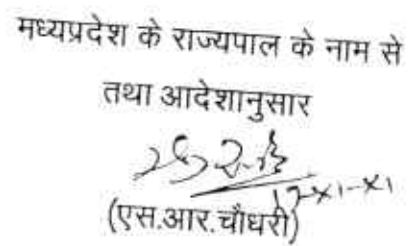 मध्यप्रदेश के राज्यपाल के नाम से
तथा आदेशानुसार
(एस.आर.चौधरी)